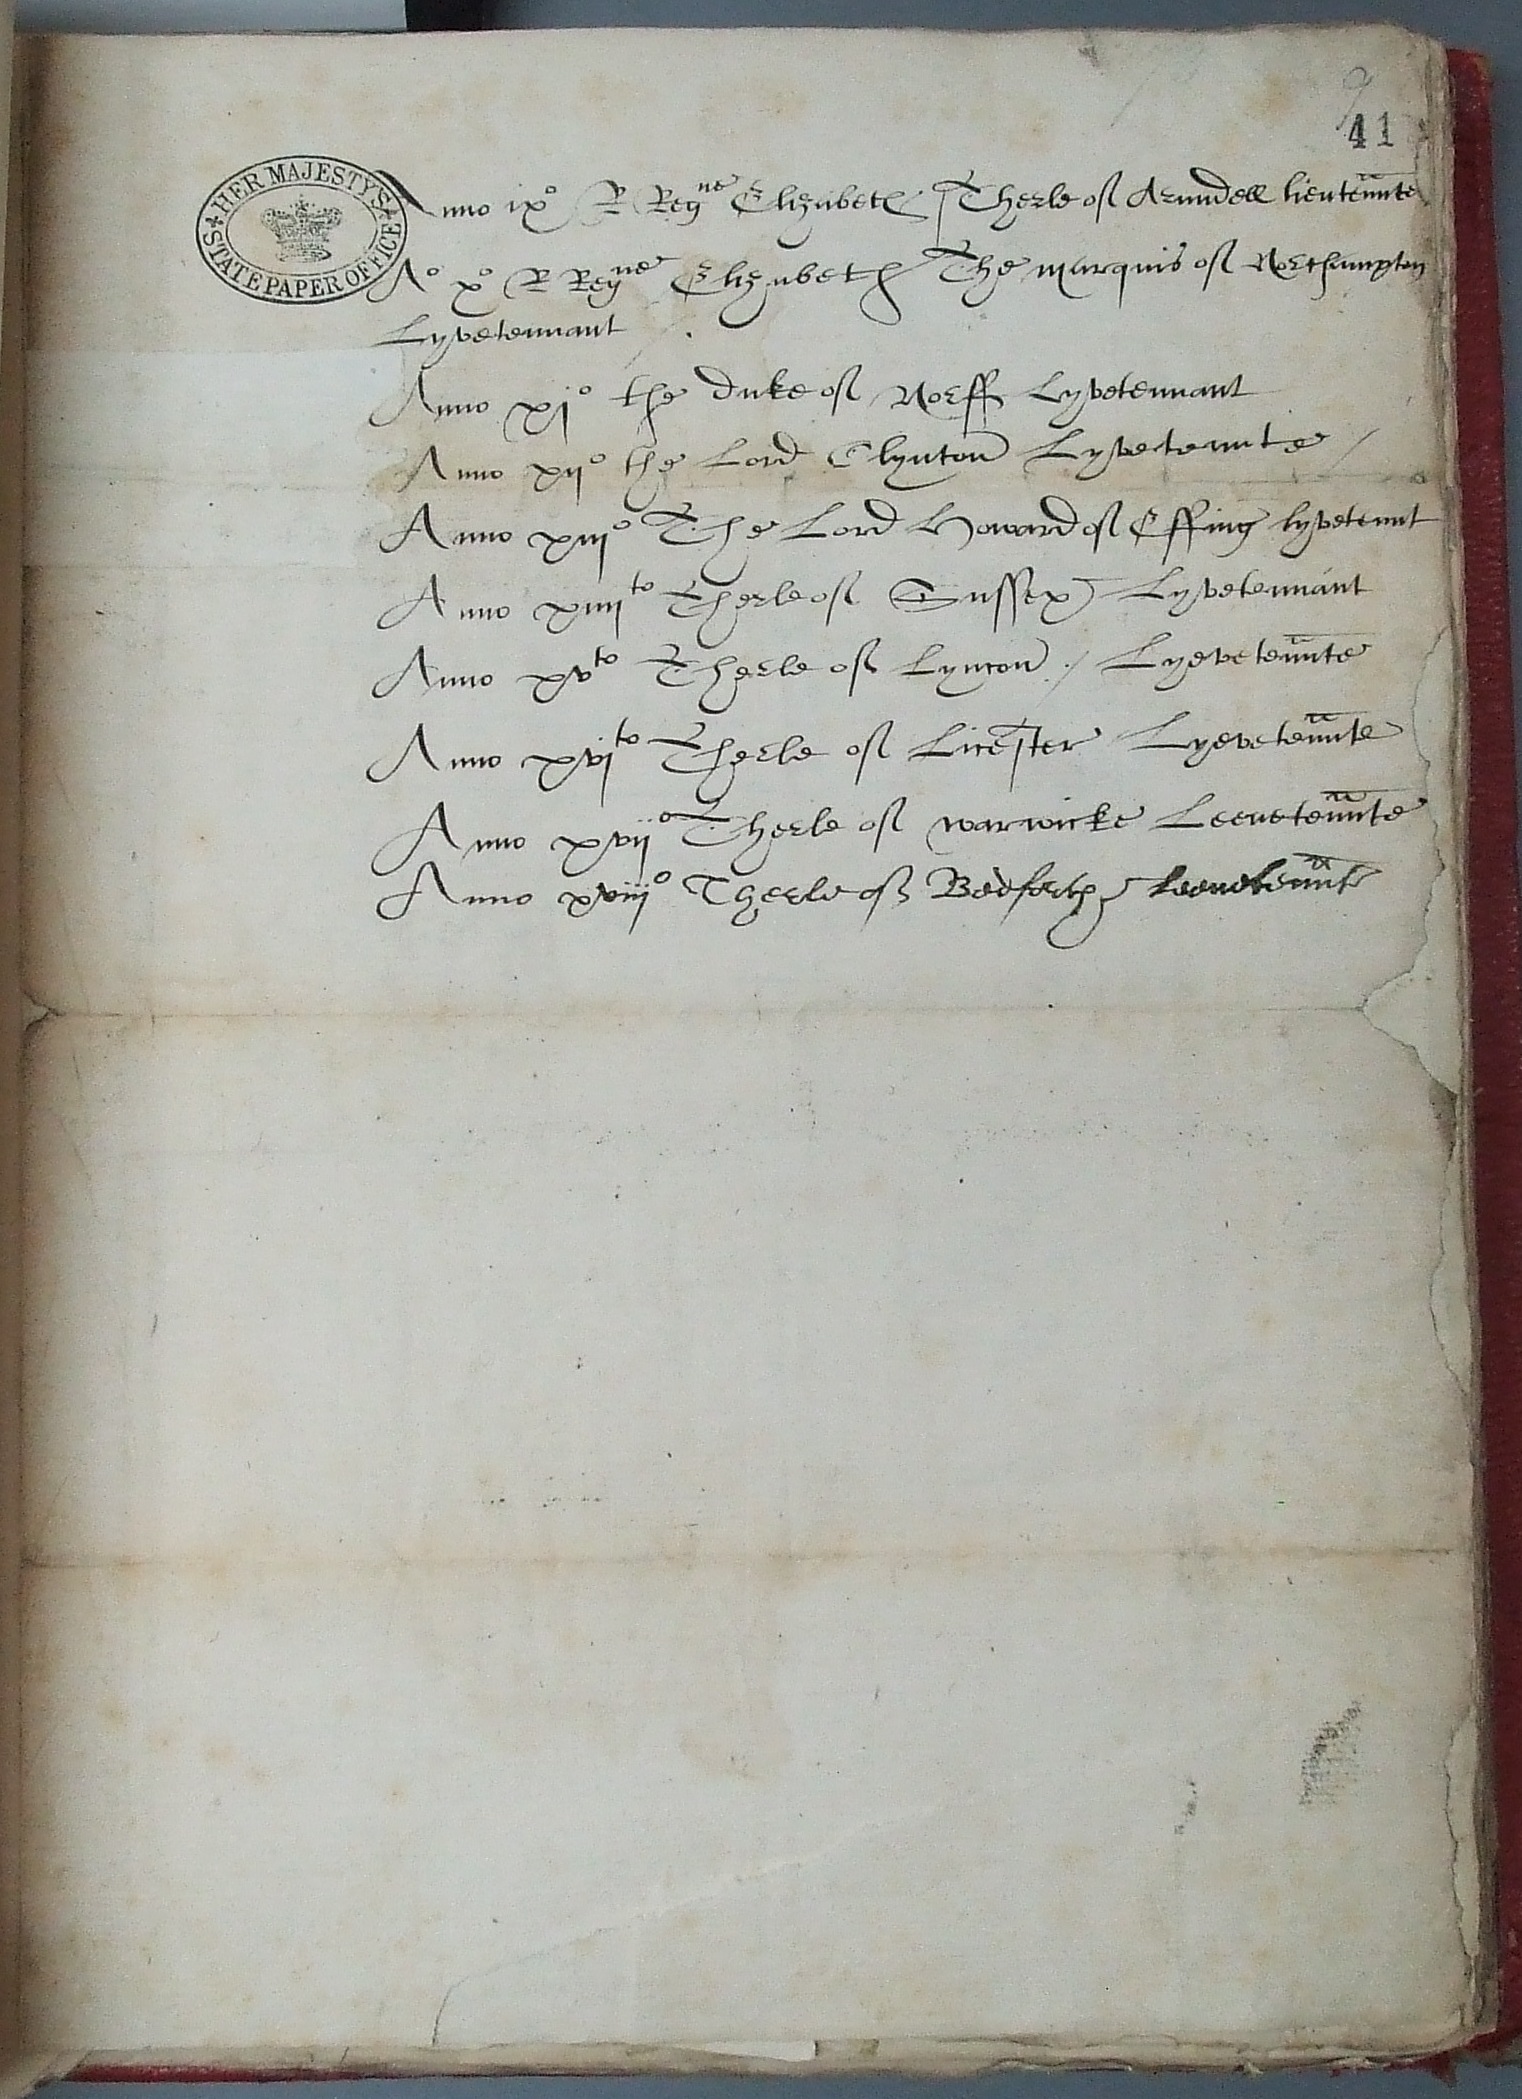 9
41
HER MAJESTY'S STATE PAPER OFFICE
Anno ixº R Regne Elizabeth Therle of Arundell lieutennte
Aº xº R Regne Elizabeth The marquis of Northampton
Lyvetennant
Anno xjº the duke of Norff Lyvetennant
Anno xijº the Lord Clynton Lyvetennte
Anno xiijº The Lord Howard of Effing lyvetennt
Anno xiiijto Therle of Sussex Lyvetennant
Anno xvto Therle of Lyncon Lyevetennte
Anno xvjto Therle of Licester Lyevetennte
Anno xvijº Therle of warwicke Leevetennte
Anno xviijº Therle of Bedforth Leevetennte